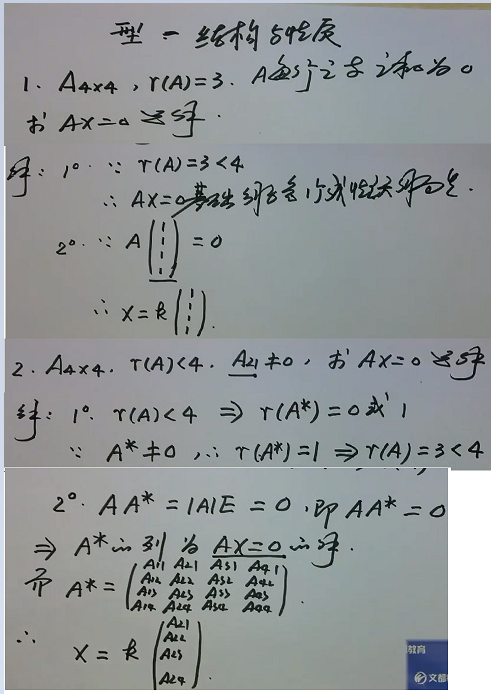 型一 结构与性质
1. A₄ₓ₄, r(A)=3. A每行元素之和为0
求 AX=0 通解.
解: 1°. ∵ r(A)=3<4
∴ AX=0基础解系含1个线性无关解向量.
2°. ∵ A(1 1 1 1) = 0
∴ X=k(1 1 1 1).
2. A₄ₓ₄. r(A)<4. A₂₁≠0, 求 AX=0 通解
解: 1°. r(A)<4 ⇒ r(A*)=0或1
∵ A*≠0, ∴ r(A*)=1 ⇒ r(A)=3<4
2°. AA*=|A|E=0, 即 AA*=0
⇒ A*的列为AX=0的解.
而 A* = (A11 A21 A31 A41
A12 A22 A32 A42
A13 A23 A33 A43
A14 A24 A34 A44).
∴ X = k (A21
A22
A23
A24).
教育
文都